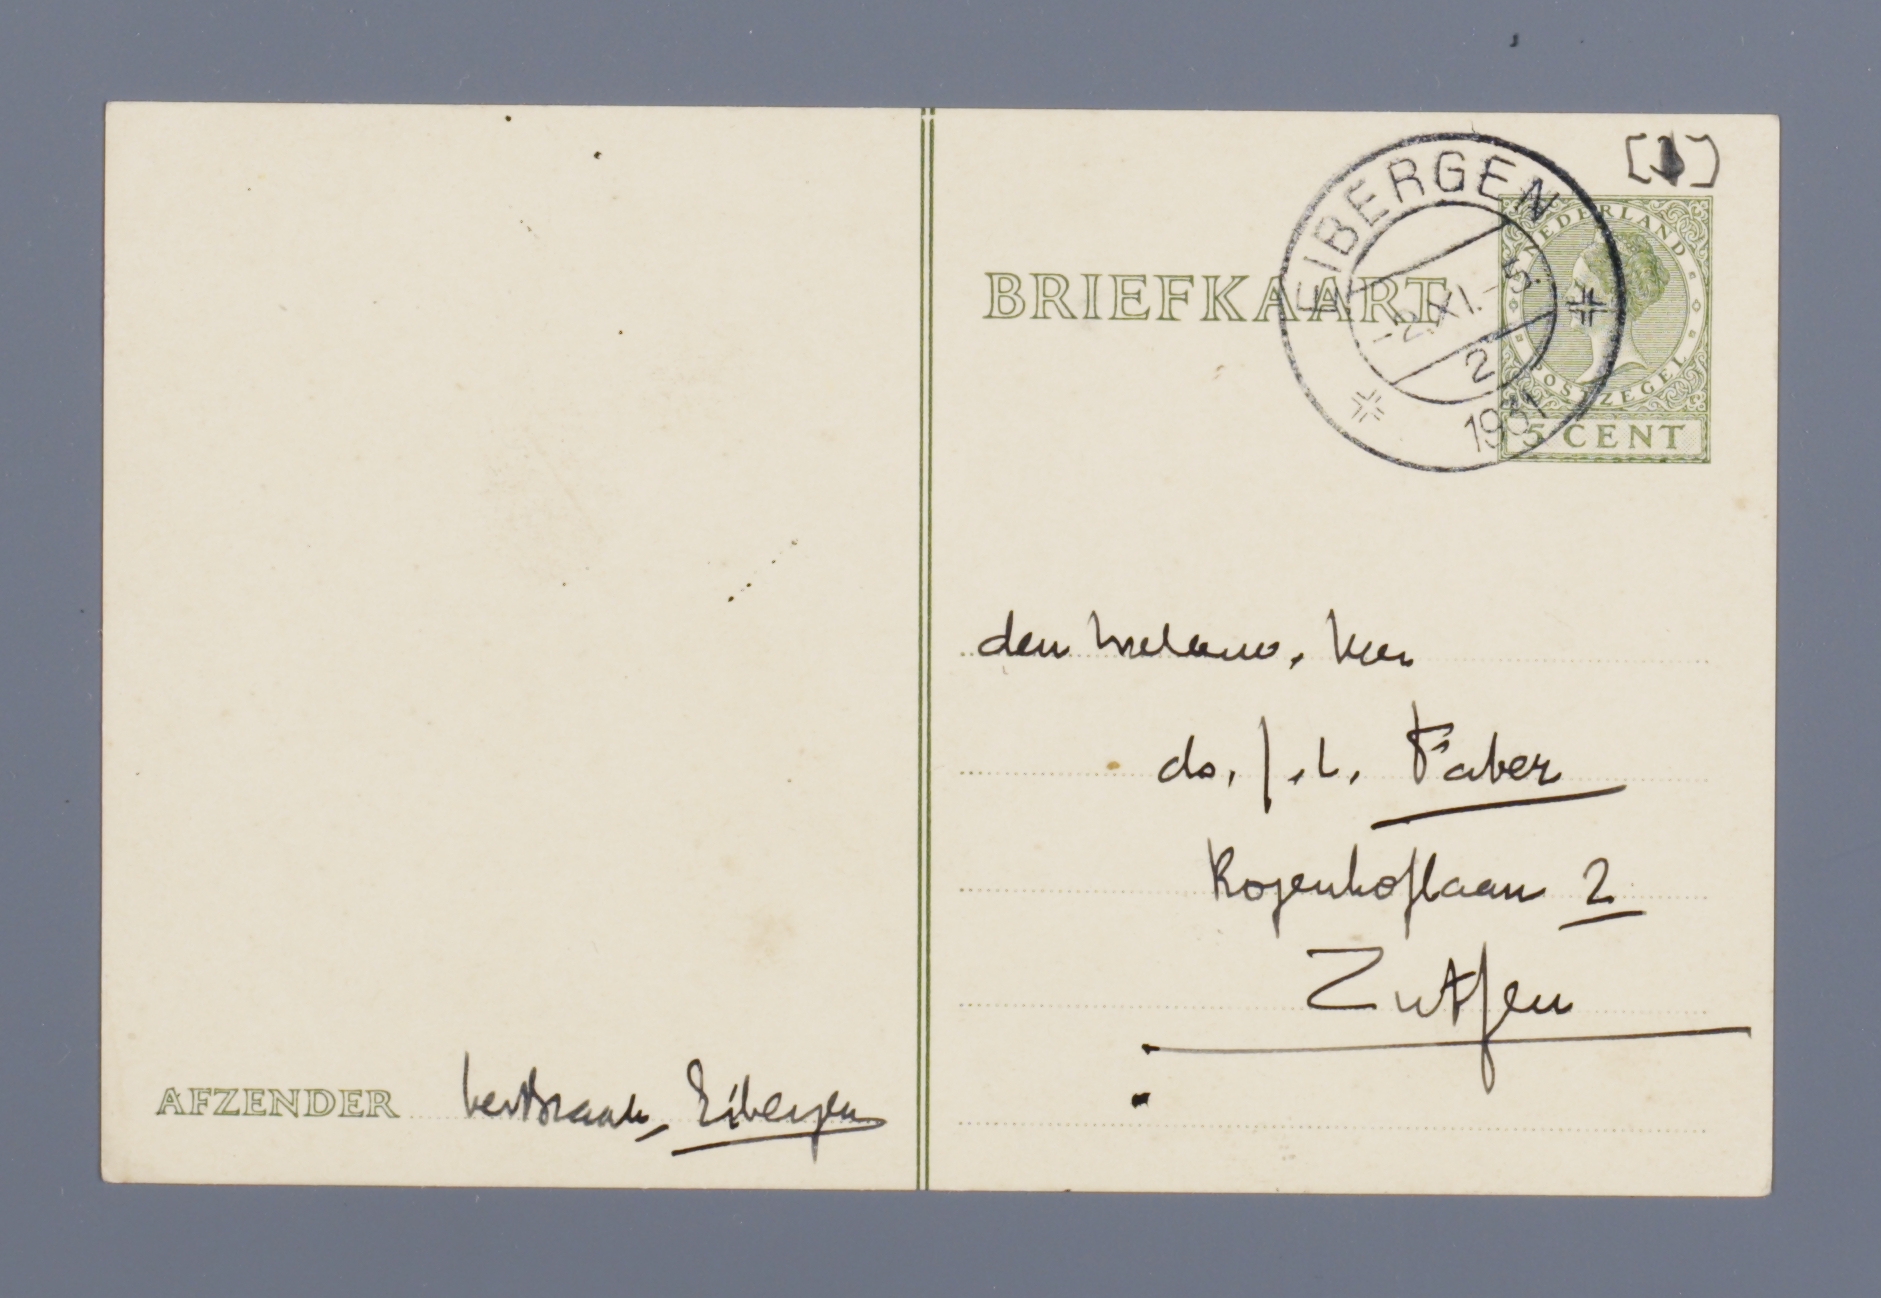 EIBERGEN
-2.XI.-5
2
1931
NEDERLAND
POSTZEGEL
5 CENT
BRIEFKAART
den weleerw. heer
ds. J.L. Faber
Rozenhoflaan 2
Zutfen
AFZENDER terBraak, Eibergen